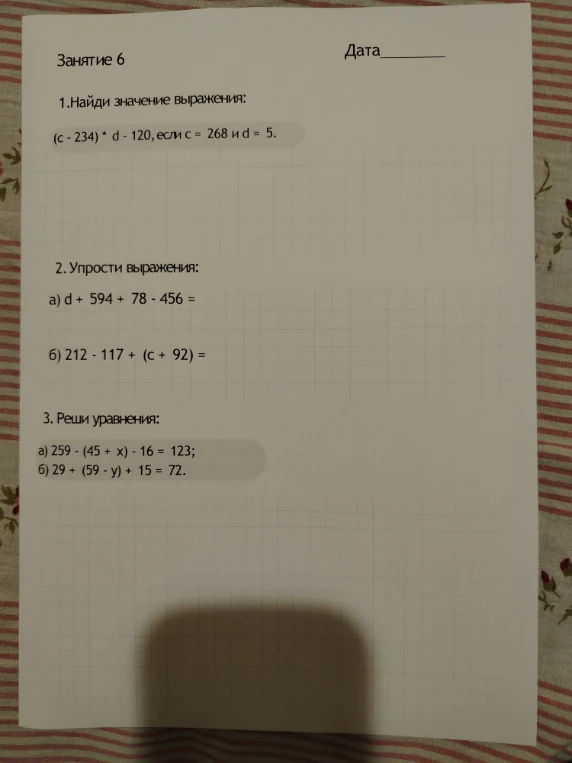 Занятие 6
Дата_______
1.Найди значение выражения:
(c - 234) * d - 120, если c = 268 и d = 5.
2. Упрости выражения:
а) d + 594 + 78 - 456 =
б) 212 - 117 + (c + 92) =
3. Реши уравнения:
а) 259 - (45 + x) - 16 = 123;
б) 29 + (59 - y) + 15 = 72.